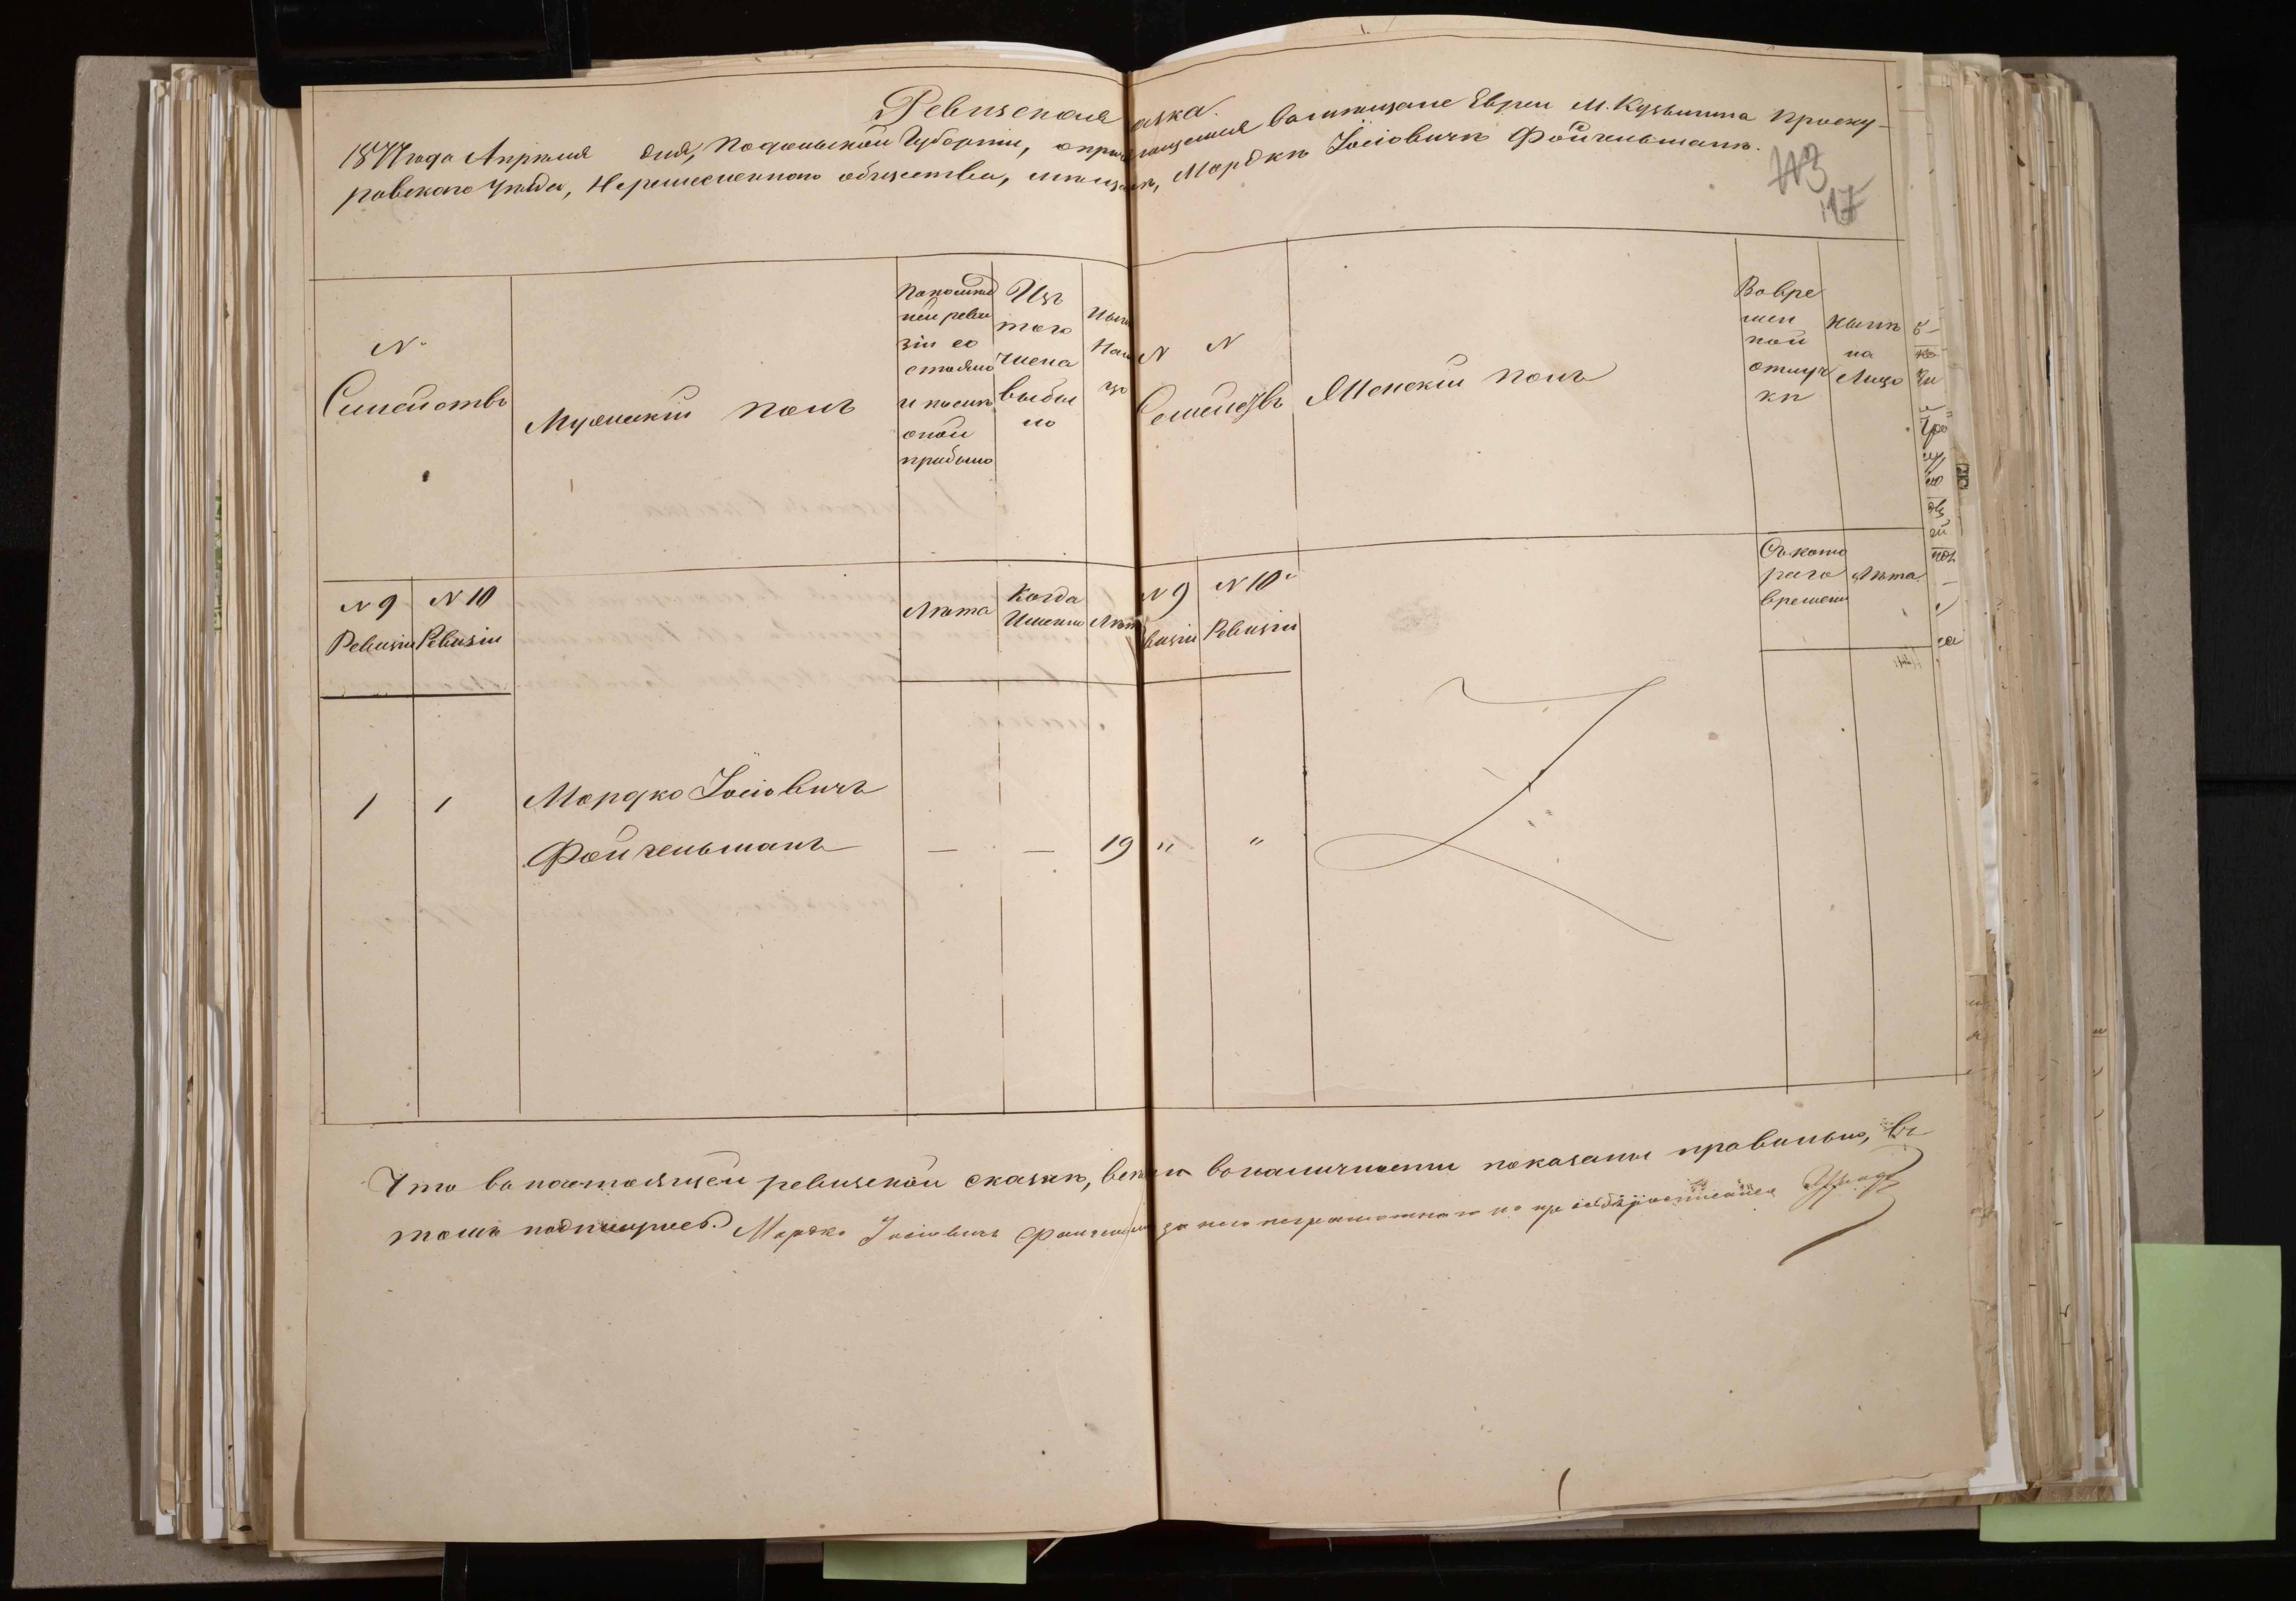 Ревизская азка.
1877 года Апрѣля дня, Подольской Губерніи, о причисленіи в мѣщане Евреи М. Кузьмина Проску-
ровского Уѣзда, Неремесленного общества, мѣщанъ, Мордкѣ Іосіовичѣ Фойгельманъ.
113
117
№
Семействъ
Мужескій полъ
По послѣд
ней реви
зіи со
стояло
и послѣ
оной
прибыло
Изъ
того
числа
выбы
ло
Нынѣ
На ли
цо
№ №
Семействъ
Женскій полъ
Во вре
мен
ной
отлуч
кѣ
Нынѣ
на
Лицо
№ 9
Ревизіи
№ 10
Ревизіи
Лѣта
Когда
Именно
Лѣта
№ 9
визіи
№ 10
Ревизіи
Съ кото
раго
времени
Лѣта
1 1 Мордко Іосіовичъ
Фойгельманъ — — 19 " "
Что в настоящей ревизской сказкѣ, всѣ в наличности показаны правильно, въ
томъ подпишуюсь. Мордко Іосіовичъ Фойгельманъ за него неграмотного по